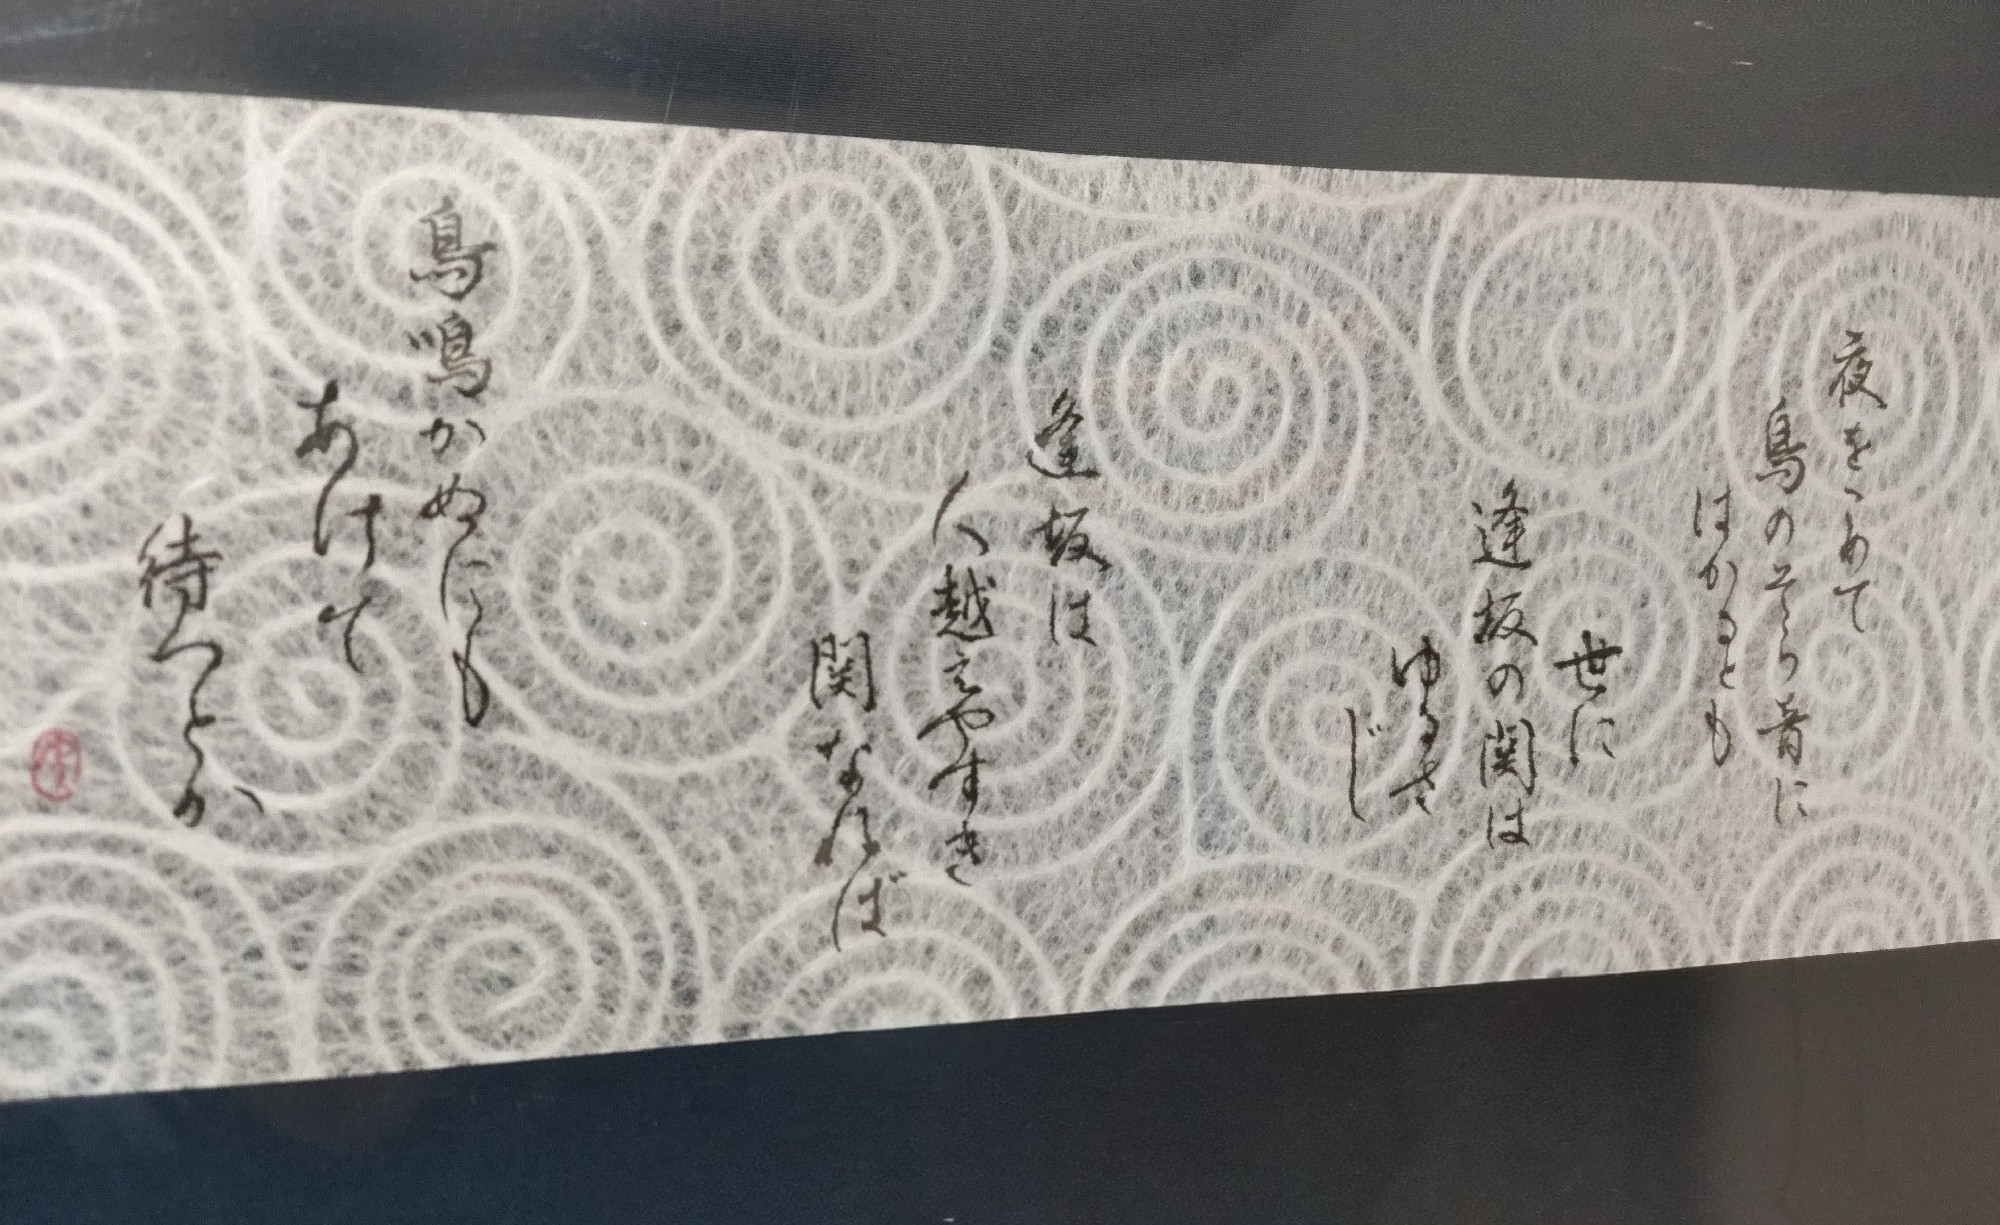 夜をこめて
鳥のそら音に
はかるとも
世に
逢坂の関は
ゆるさ
じ
逢坂は
人越えやすき
関なれば
鳥鳴かぬにも
あけて
待つとか